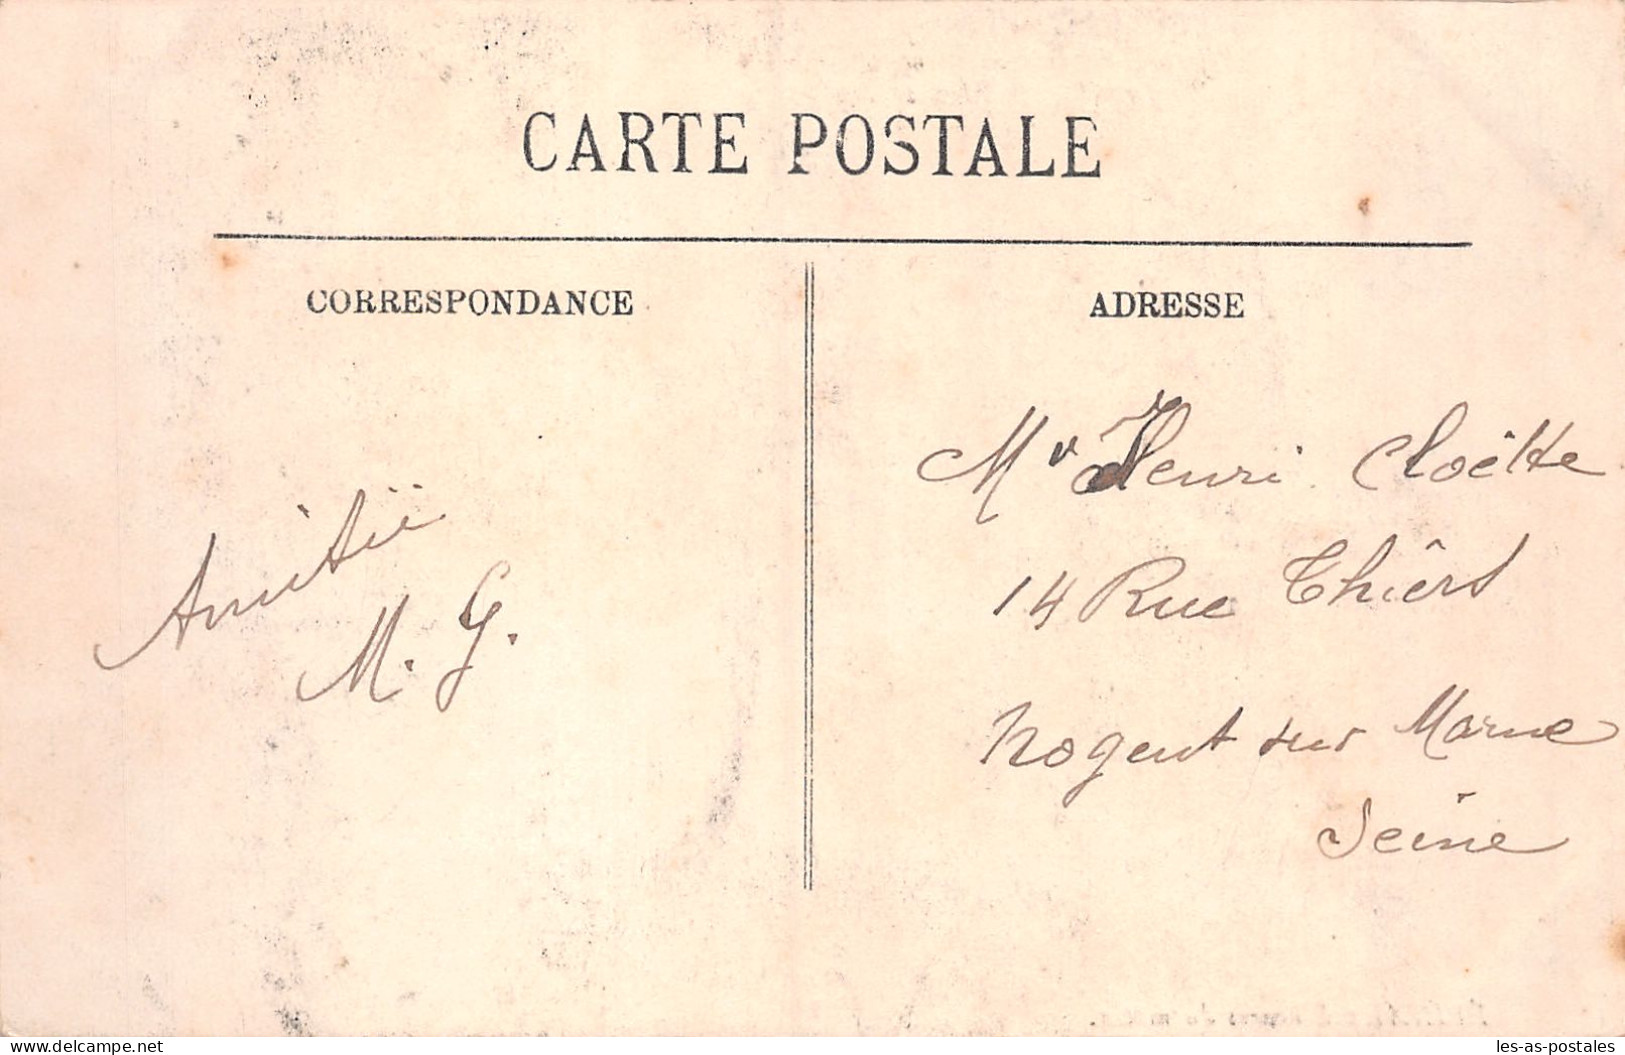 CARTE POSTALE
CORRESPONDANCE
Amitié
M. G.
ADRESSE
Mr Henri Cloëtte
14 Rue Thiers
Nogent sur Marne
Seine
www.delcampe.net
les-as-postales